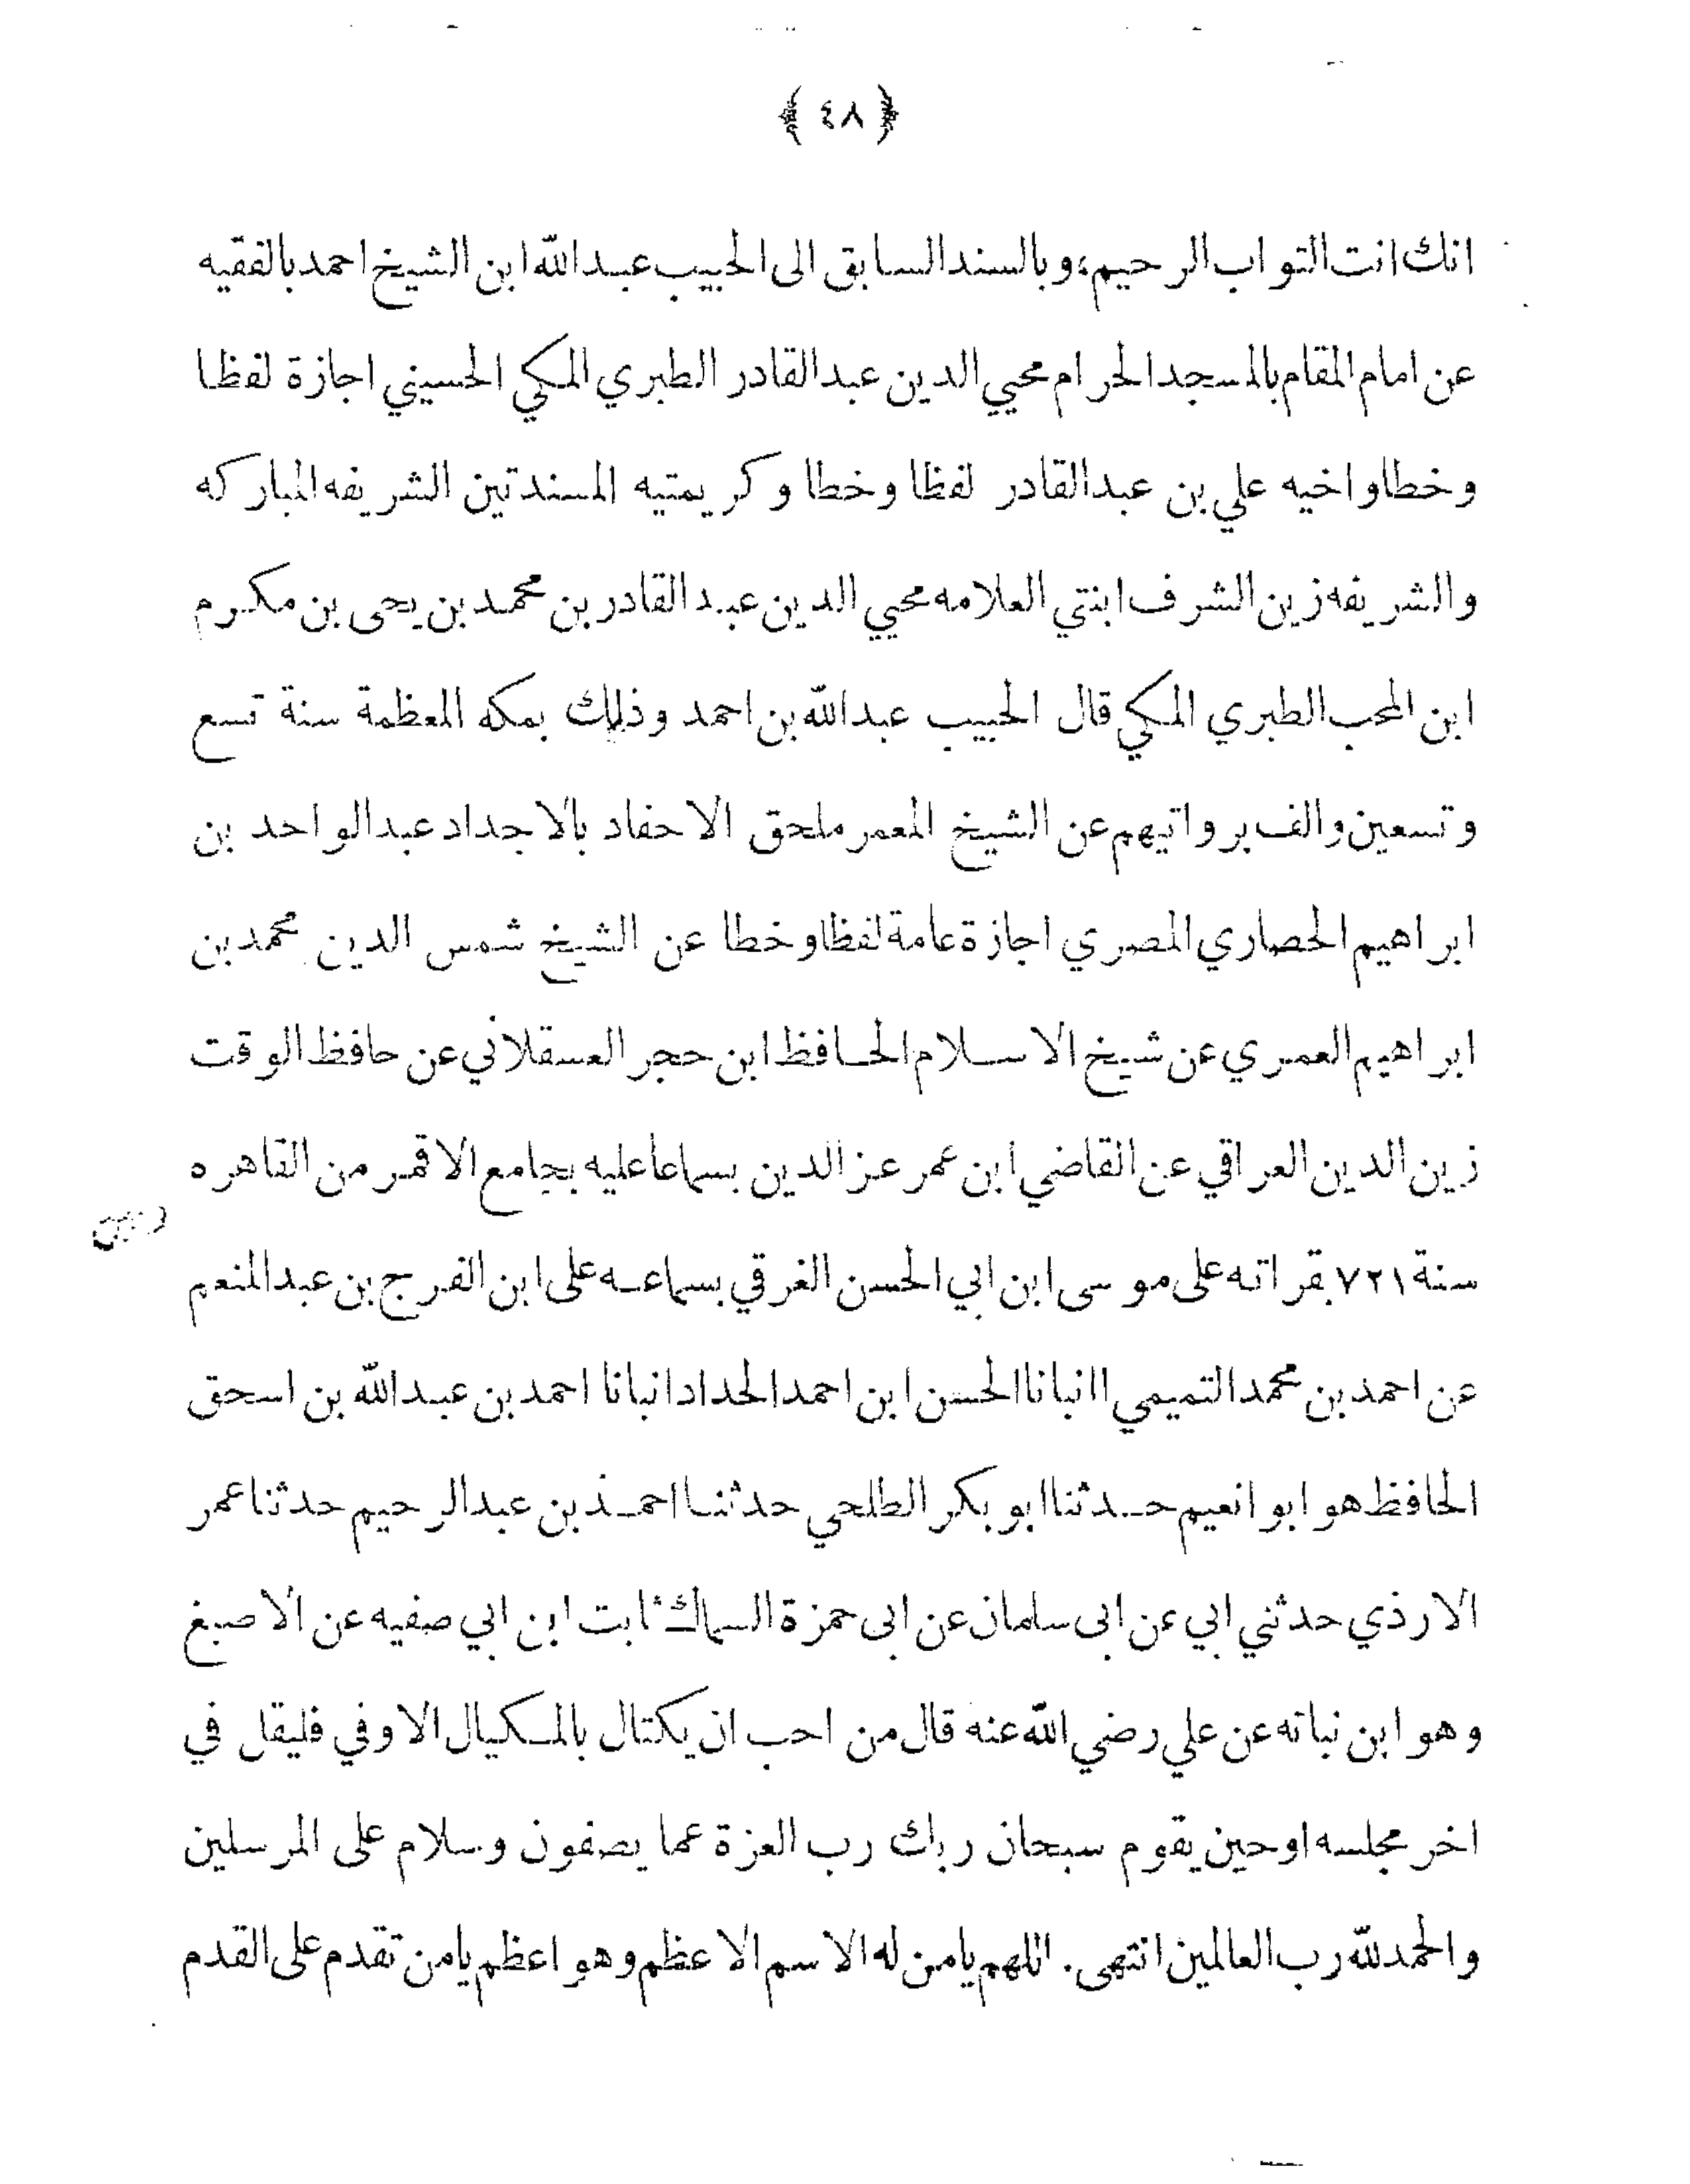 ﴿ ٤٨ ﴾
انك انت التواب الرحيم، وبالسند السابق الى الحبيب عبد الله ابن الشيخ احمد بالفقيه
عن امام المقام بالمسجد الحرام محيي الدين عبد القادر الطبري المكي الحسيني اجازة لفظا
وخطا واخيه علي بن عبد القادر لفظا وخطا وكريمتيه المسندتين الشريفه المباركه
والشريفه زين الشرف ابنتي العلامه محيي الدين عبد القادر بن محمد بن يحى بن مكرم
ابن المحب الطبري المكي قال الحبيب عبد الله بن احمد وذلك بمكه المعظمة سنة تسع
وتسعين والف برواتيهم عن الشيخ المعمر ملحق الاحفاد بالاجداد عبد الواحد بن
ابراهيم الحصاري المصري اجازة عامة لفظا وخطا عن الشيخ شمس الدين محمد بن
ابراهيم العمري عن شيخ الاسلام الحافظ ابن حجر العسقلاني عن حافظ الوقت
زين الدين العراقي عن القاضي ابن عمر عز الدين بسماعا عليه بجامع الاقمر من القاهره
سنة ٧٢١ بقراته على موسى ابن ابي الحسن الغرقي بسماعه على ابن الفرج بن عبد المنعم
عن احمد بن محمد التميمي اانبانا الحسن ابن احمد الحداد انبانا احمد بن عبد الله بن اسحق
الحافظ هو ابو انعيم حدثنا ابو بكر الطلحي حدثنا احمد بن عبد الرحيم حدثنا عمر
الارذي حدثني ابي عن ابى سلمان عن ابى حمزة السماك ثابت ابن ابي صفيه عن الاصبغ
وهو ابن نباته عن علي رضي الله عنه قال من احب ان يكتال بالمكيال الاوفي فليقل في
اخر مجلسه او حين يقوم سبحان ربك رب العزة عما يصفون وسلام على المرسلين
والحمد لله رب العالمين انتهى. اللهم يا من له الاسم الاعظم وهو اعظم يا من تقدم على القدم